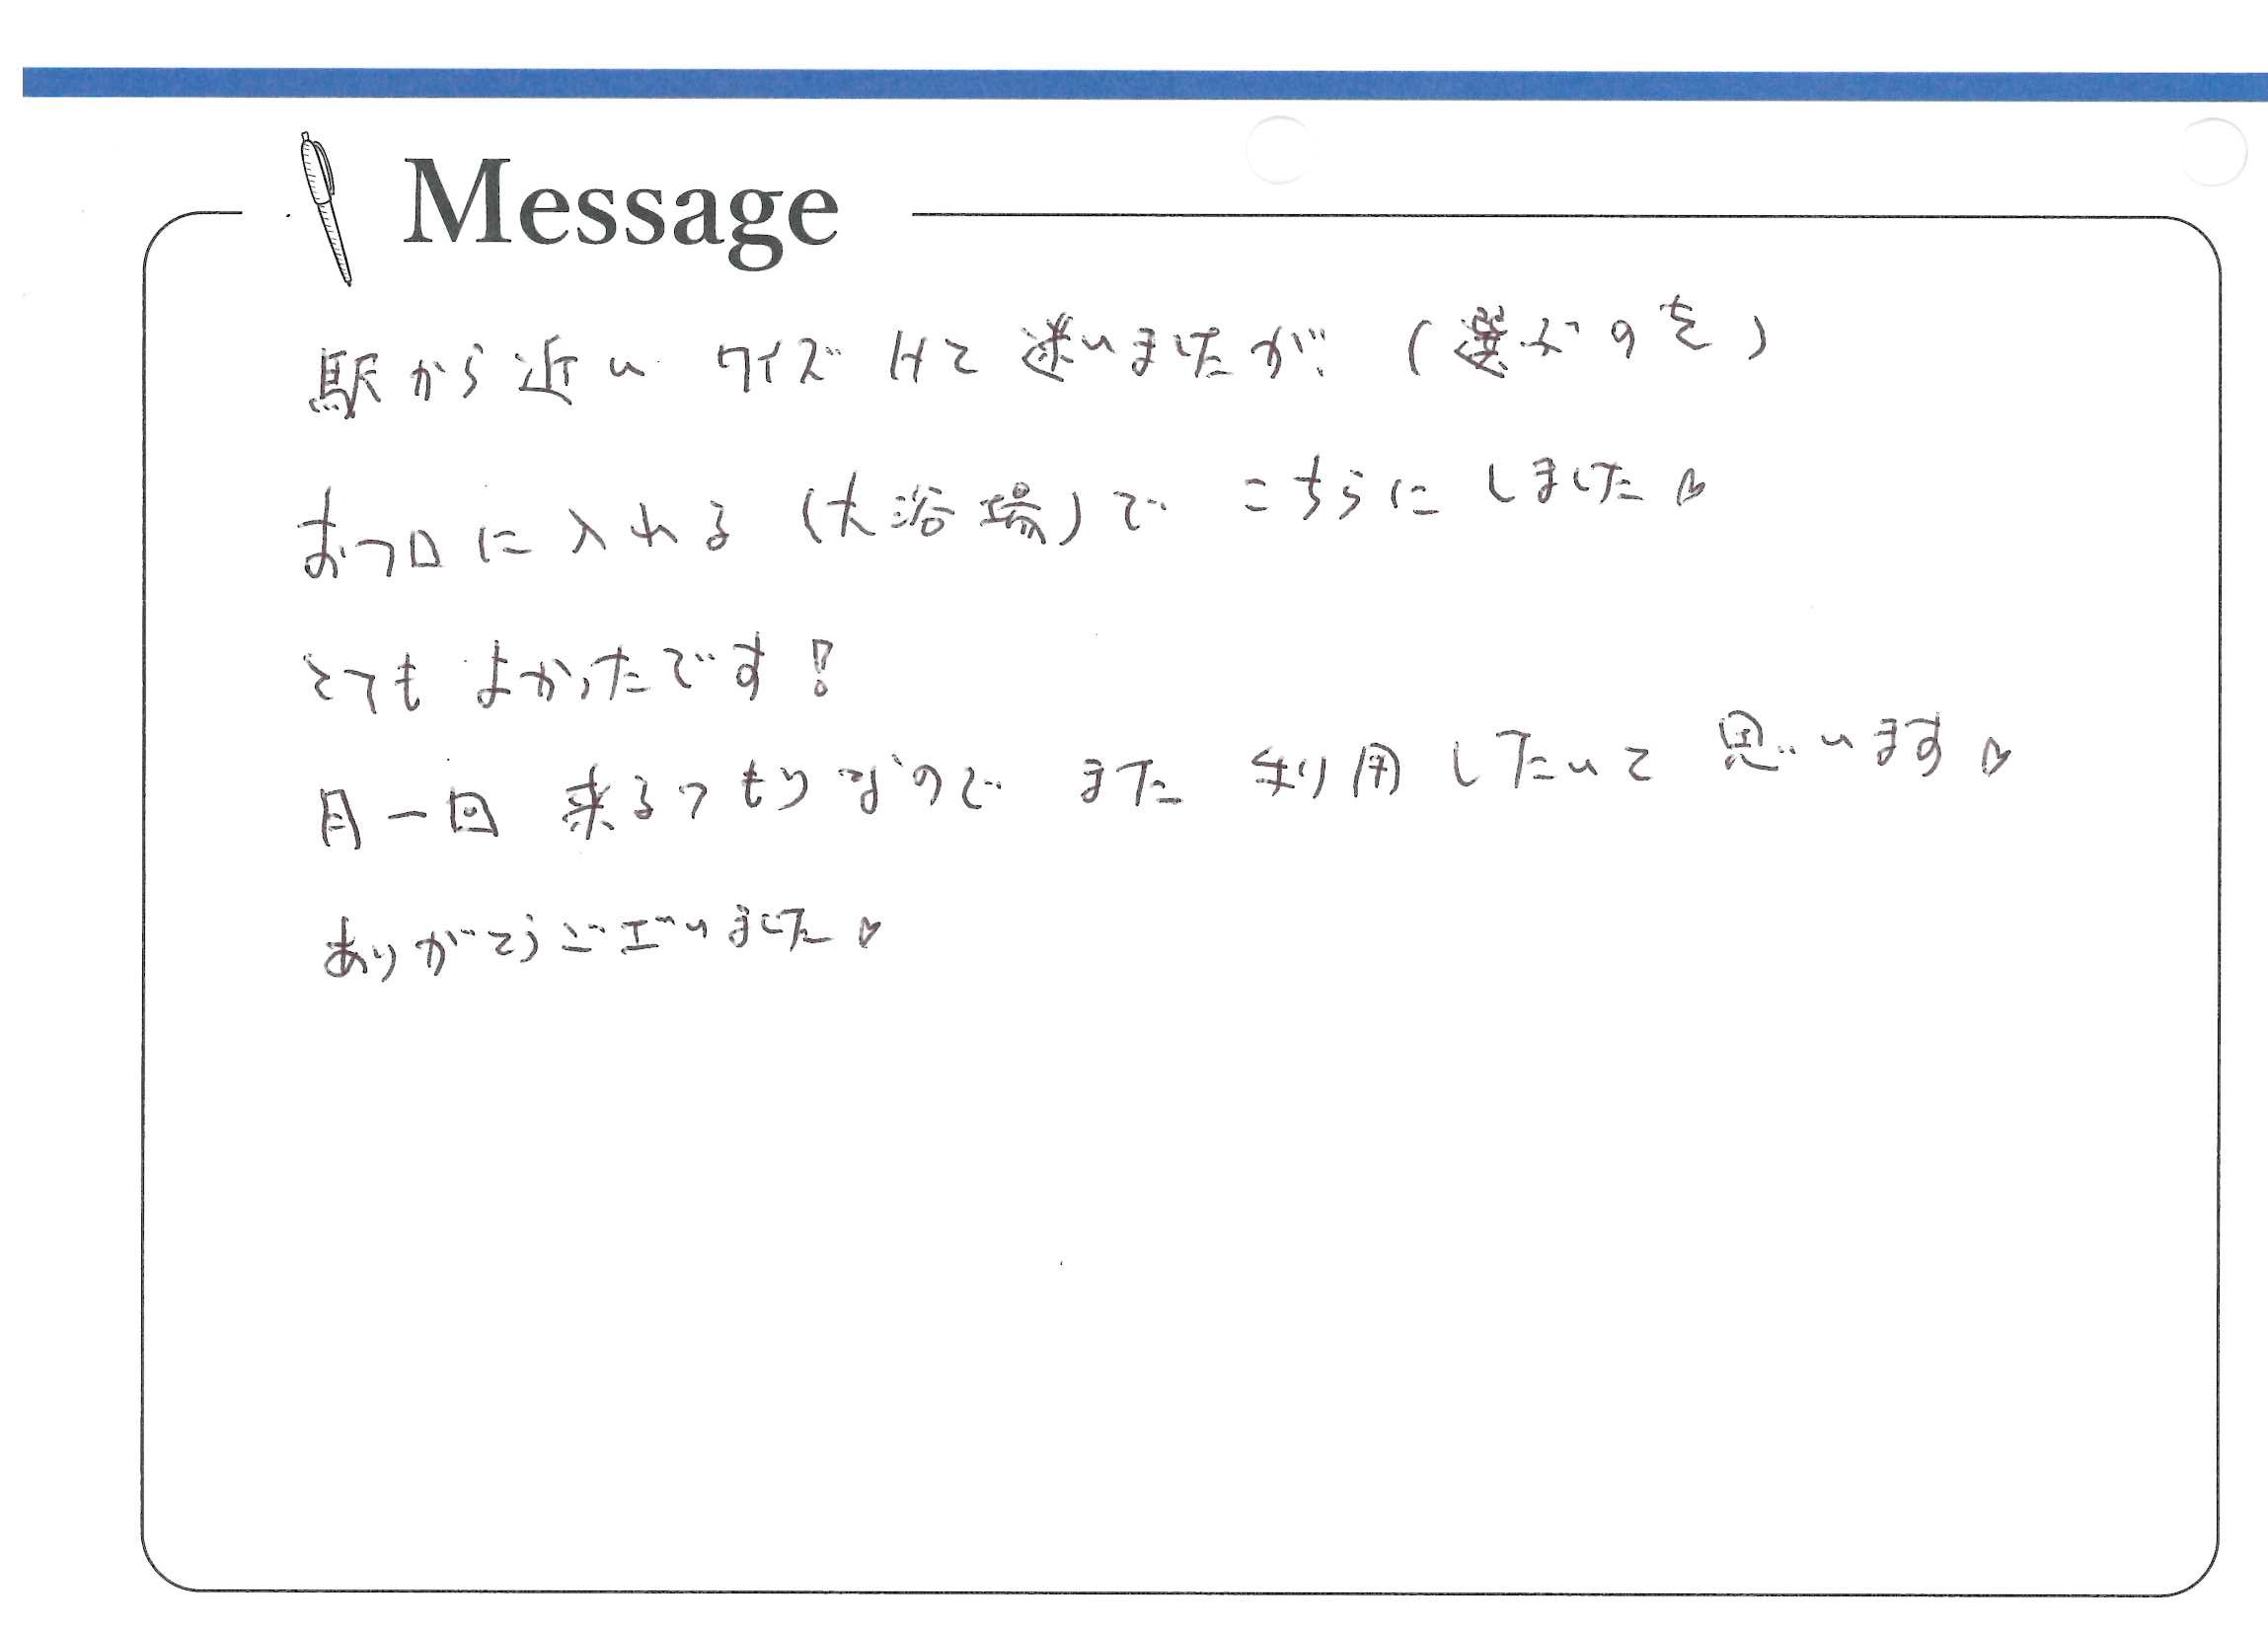 Message
駅から近い ワイズ Hと 迷いましたが、(選ぶのを)
おフロに 入れる (大浴場)で こちらに しました♡
とても よかったです!
月一回 来るつもりなので また 利用したいと 思います♡
ありがとうございました♡